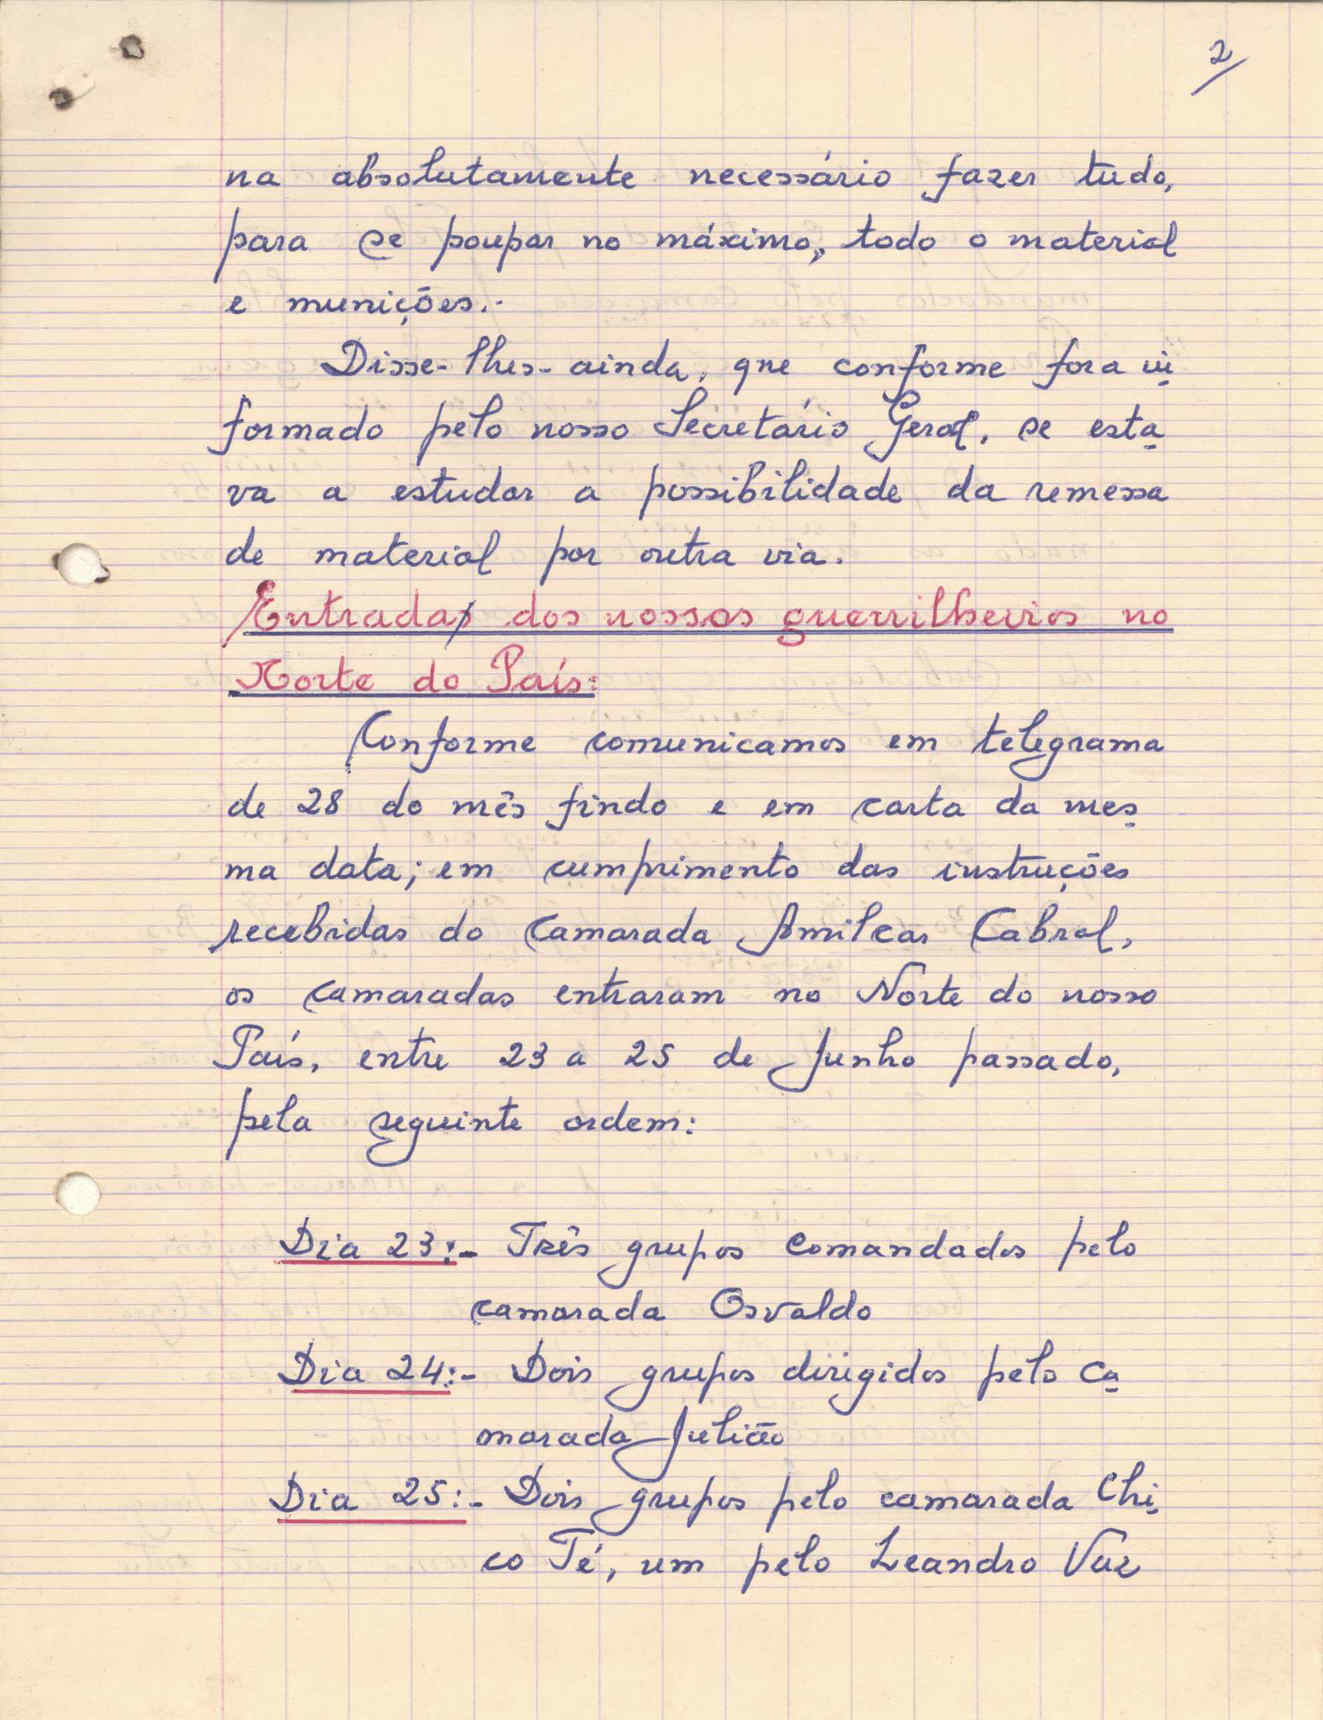 2/
na absolutamente necessário fazer tudo,
para se poupar no máximo, todo o material
e munições.-
Disse-lhes-ainda, que conforme fora in
formado pelo nosso Secretário Geral, se esta
va a estudar a possibilidade da remessa
de material por outra via.
Entrada dos nossos guerrilheiros no
Norte do País:
Conforme comunicamos em telegrama
de 28 do mês findo e em carta da mes
ma data; em cumprimento das instruções
recebidas do Camarada Amilcar Cabral,
os camaradas entraram no Norte do nosso
País, entre 23 a 25 de Junho passado,
pela seguinte ordem:
Dia 23:- Três grupos comandados pelo
camarada Osvaldo
Dia 24:- Dois grupos dirigidos pelo Ca
marada Julião
Dia 25:- Dois grupos pelo camarada Chi
co Té, um pelo Leandro Vaz